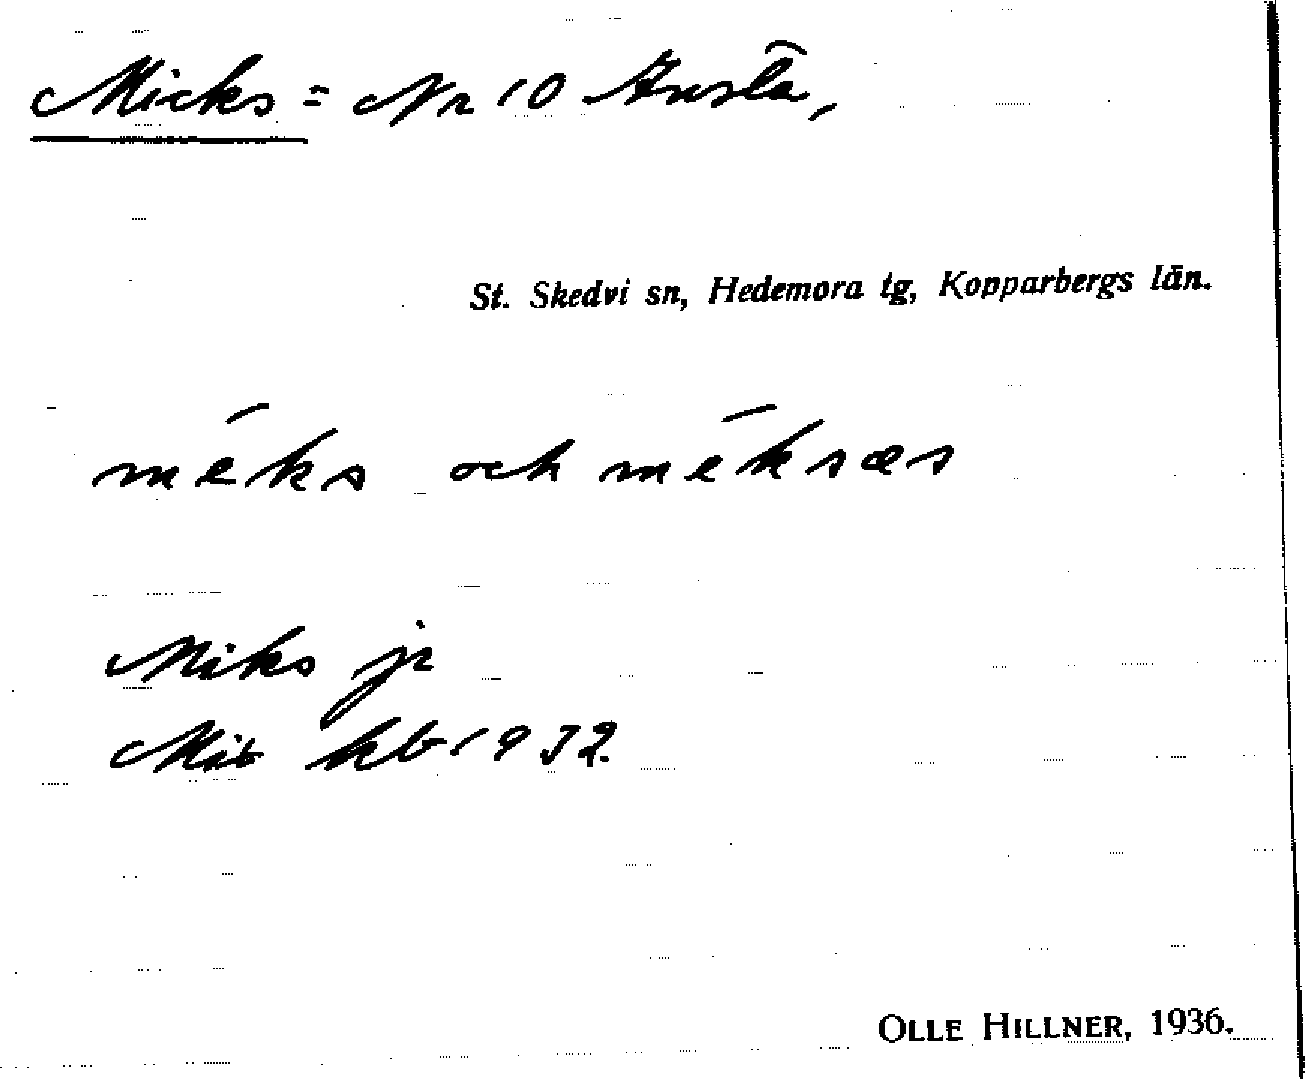 Micks = Nr 10 Ansta,
St. Skedvi sn, Hedemora tg, Kopparbergs län.
mēks och mēksæs
Miks jr
kb 1932.
OLLE HILLNER, 1936.